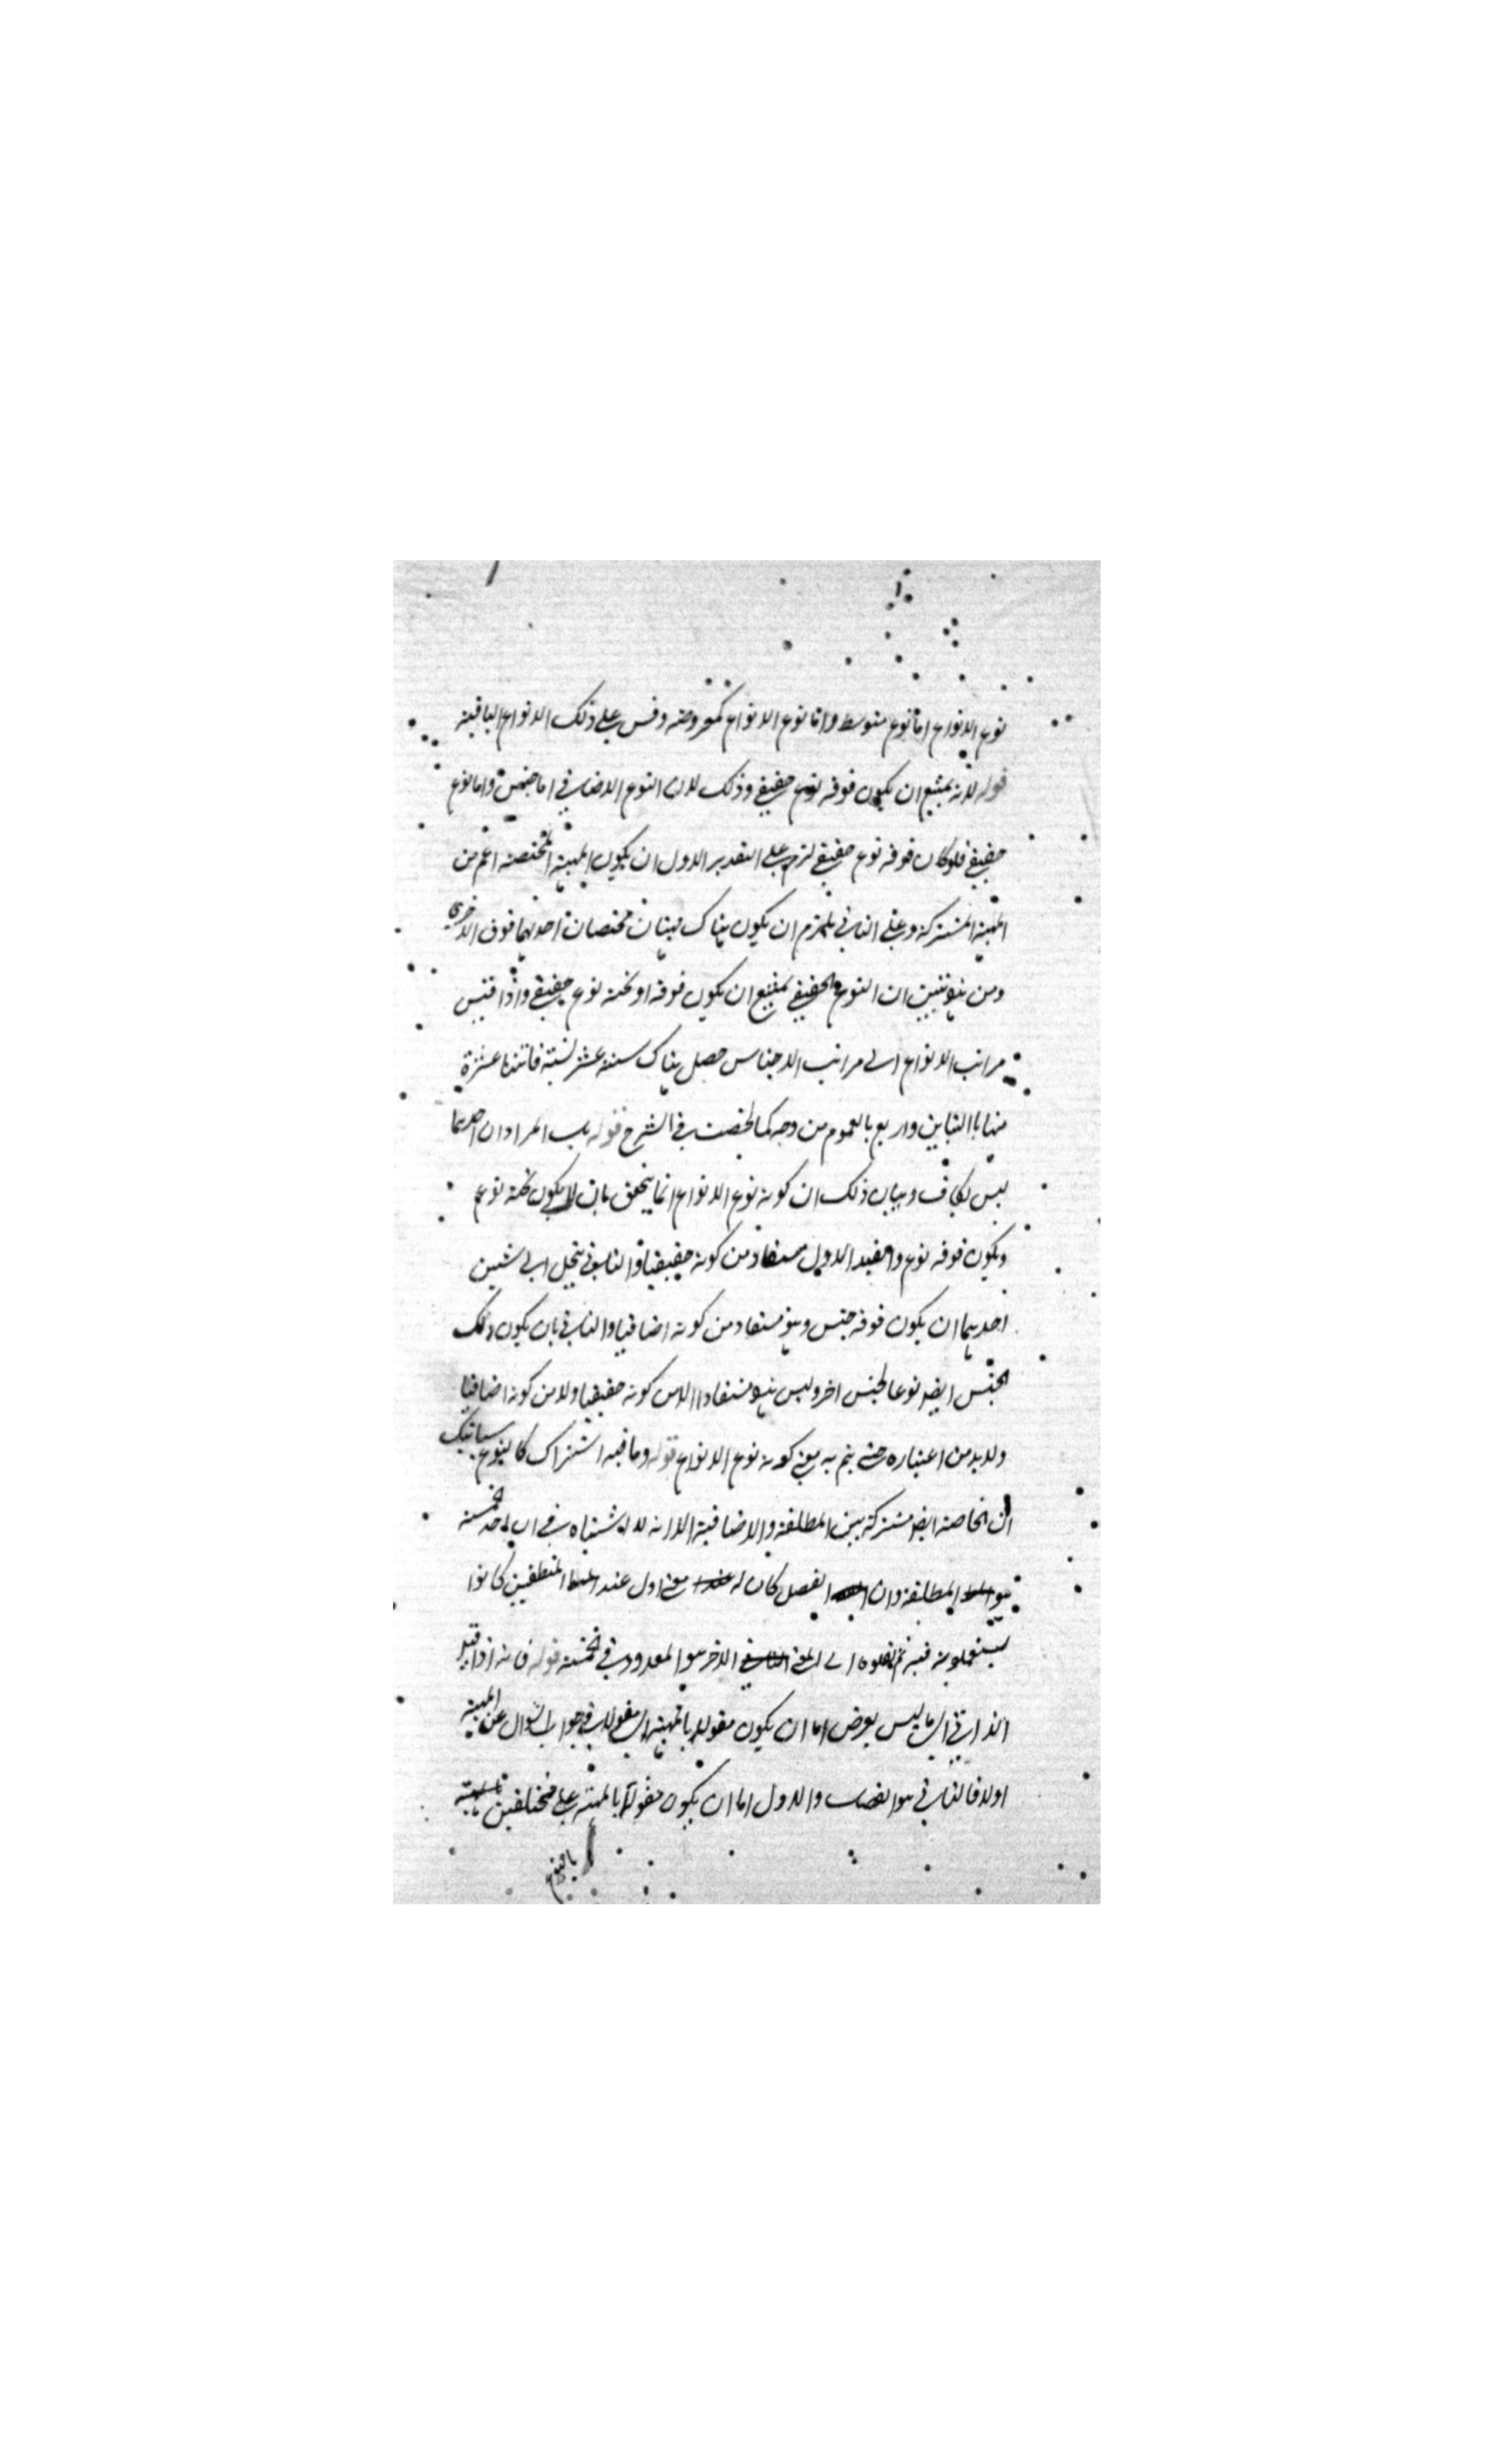 نوع الانواع اما نوع متوسط واما نوع الانواع كمعروضه وقس على ذلك الانواع الباقية
قوله لانه يمتنع ان يكون فوقه نوع حقيقي وذلك لان النوع الاضافي اما جنس واما نوع
حقيقي فلو كان فوقه نوع حقيقي لزم على التقدير الاول ان يكون المهية المختصة اعم من
المهية المشتركة وعلى الثاني يلزم ان يكون هناك مهيتان مختصتان احديهما فوق الاخرى
ومن هنا تبين ان النوع الحقيقي يمتنع ان يكون فوقه او تحته نوع حقيقي واذا قيس
مراتب الانواع الى مراتب الاجناس حصل هناك ستة عشر نسبة فاثنتا عشرة
منها بالتباين واربع بالعموم من وجه كما لخصت في الشرح قوله بل المراد ان احديهما
ليس بكاف وبيان ذلك ان كونه نوع الانواع انما يتحقق بان لا يكون تحته نوع
ويكون فوقه نوع والقيد الاول مستفاد من كونه حقيقيا والثاني ينحل الى شيئين
احديهما ان يكون فوقه جنس وهو مستفاد من كونه اضافيا والثاني بان يكون ذلك
الجنس ايضا نوعا لجنس اخر وليس هو مستفادا الا من كونه حقيقيا ولا من كونه اضافيا
ولا بد من اعتباره حتى يتم به معنى كونه نوع الانواع قوله وما فيه اشتراك كالنوع سياتيك
ان الخاصة ايضا مشتركة بين المطلقة والاضافية الا انه لا اشتباه في ان احد الخمسة
هو المطلقة وان الفصل كان له معنى اول عند المنطقيين كانوا
يستعملونه فيه ثم نقلوه الى المعنى الاخر هو المعدود في الخمسة قوله فانه اذا قيد
الذاتي اي ما ليس بعرض اما ان يكون مقولا بالمهية اي مقولا في جواب السؤال عن المهية
اولا فالثاني هو الفصل والاول اما ان يكون مقولا بالمهية على مختلفين